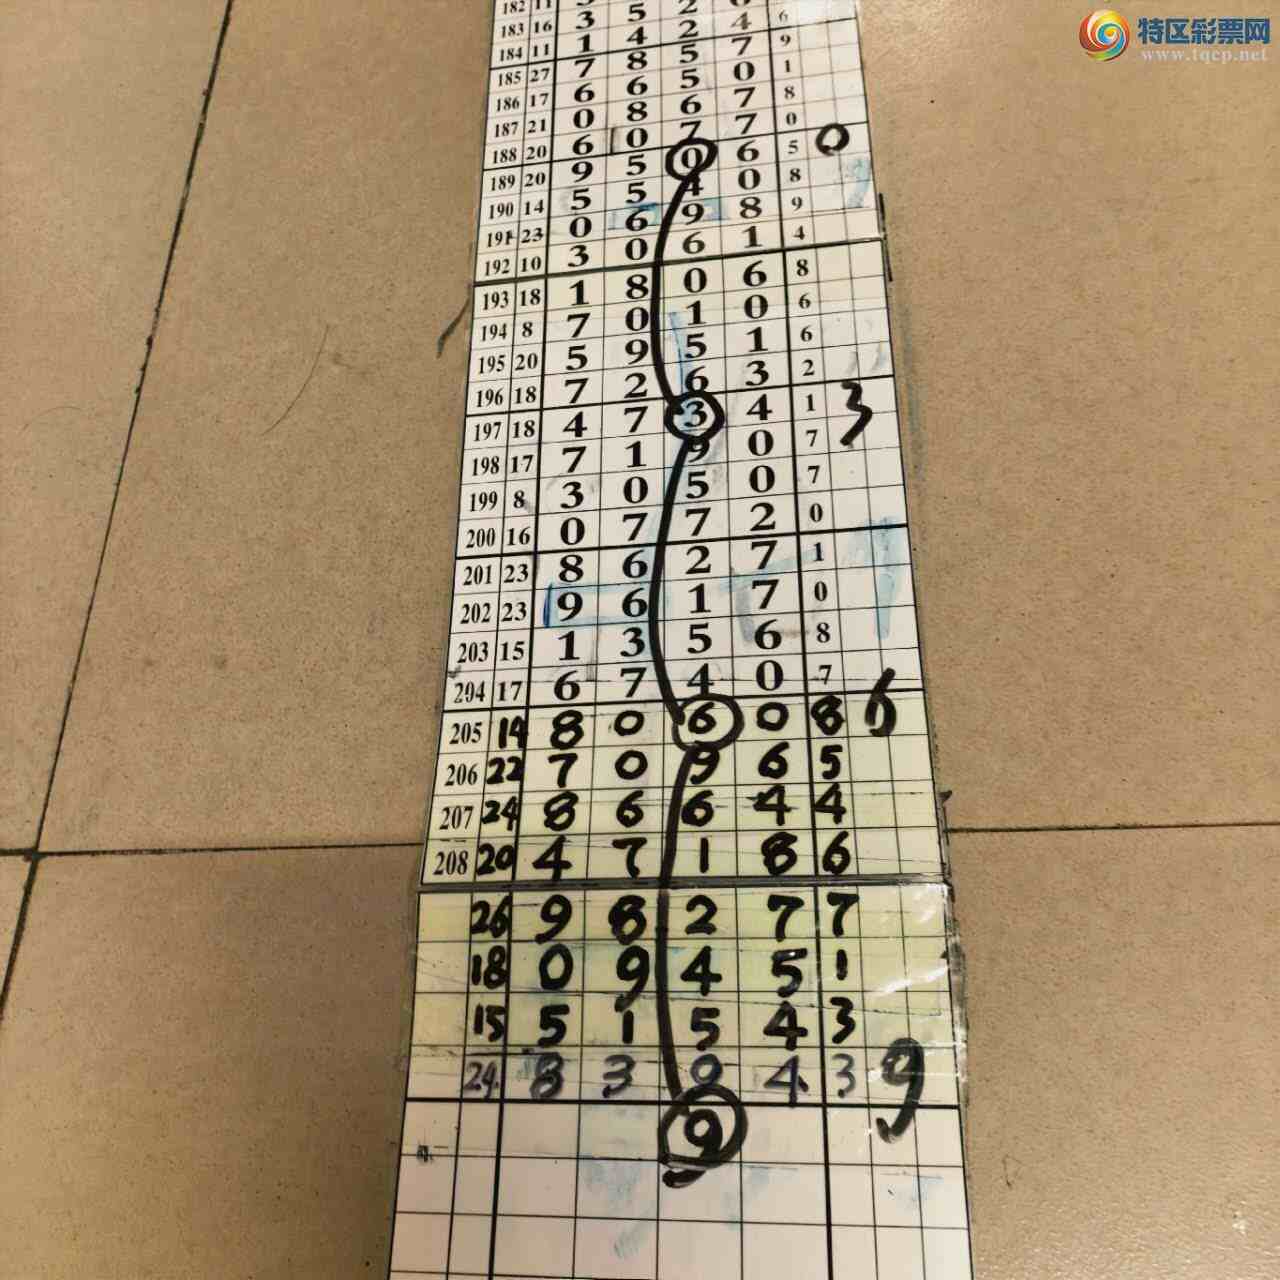 特区彩票网
www.tqcp.net
183 16 3 5 2 4 6
184 11 1 4 2 7 9
185 27 7 8 5 0 1
186 17 6 6 5 7 8
187 21 0 8 6 7 0
188 20 6 0 7 6 5 0
189 20 9 5 0 0 8
190 14 5 5 4 8 9
191 23 0 6 9 1 4
192 10 3 0 6
193 18 1 8 0 6 8
194 8 7 0 1 0 6
195 20 5 9 5 1 6
196 18 7 2 6 3 2
197 18 4 7 3 4 1 3
198 17 7 1 9 0 7
199 8 3 0 5 0 7
200 16 0 7 7 2 0
201 23 8 6 2 7 1
202 23 9 6 1 7 0
203 15 1 3 5 6 8
204 17 6 7 4 0 7
205 14 8 0 6 0 8 6
206 22 7 0 9 6 5
207 24 8 6 6 4 4
208 20 4 7 1 8 6
26 9 8 2 7 7
18 0 9 4 5 1
15 5 1 5 4 3
24 8 3 9 4 3 9
9